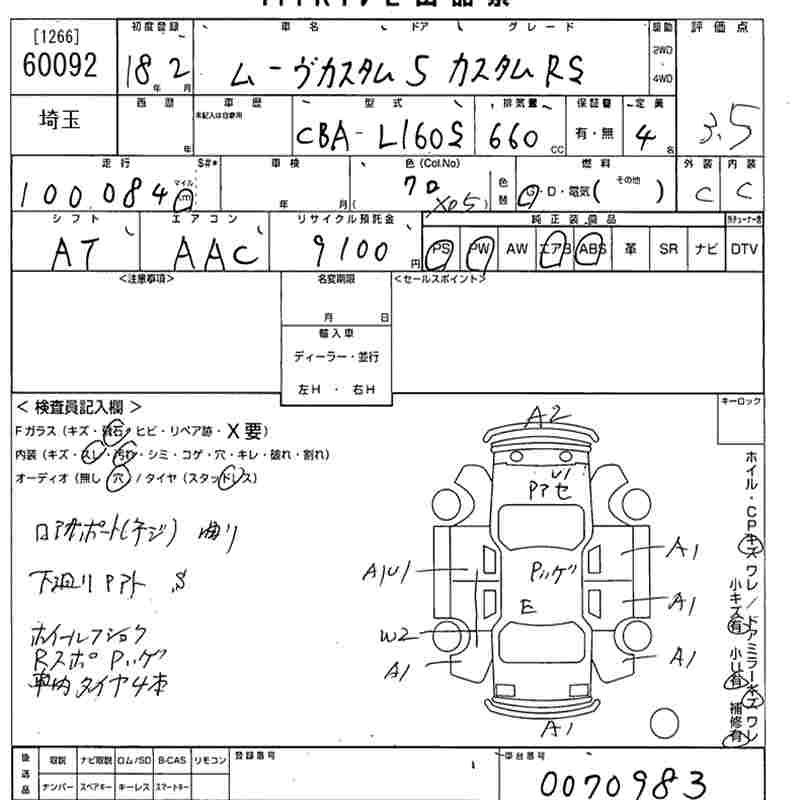 [1266] 初度登録 車名 ドア グレード 駆動 評価点
60092 18年 2月 ムーヴカスタム 5 カスタムRS 2WD 4WD 3.5
埼玉 西暦 年 車歴 未記入は自家用 型式 CBA-L160S 排気量 660 CC 保証書 有・無 定員 4名
走行 S#* 車検 色(Col.No) 燃料 外装 内装
100084 マイル km 年 月 ( X05 ) 色替 G・D・電気( その他 ) C C
シフト エアコン リサイクル預託金 純正装備品
AT AAC 9100円 PS PW AW エアB ABS 革 SR ナビ DTV
<注意事項> 名変期限 <セールスポイント>
月 日
輸入車
ディーラー・並行
左H ・ 右H
< 検査員記入欄 > キーロック
Fガラス (キズ・飛石・ヒビ・リペア跡・X要)
内装 (キズ・スレ・汚れ・シミ・コゲ・穴・キレ・破れ・割れ)
オーディオ (無し 穴) / タイヤ (スタッドレス)
下廻り Pアト S
ホイールフショク
車内タイヤ4本
A2
U1
A1U1
E
A1
A1
W2
A1
A1
A1
ホイル・CPキズ ワレ / ドアミラーキズ ワレ
小キズ有 小U有 補修有
後送品 取説 ナビ取説 ロム/SD B-CAS リモコン 登録番号 車台番号
ナンバー スペアキー キーレス スマートキー 0070983